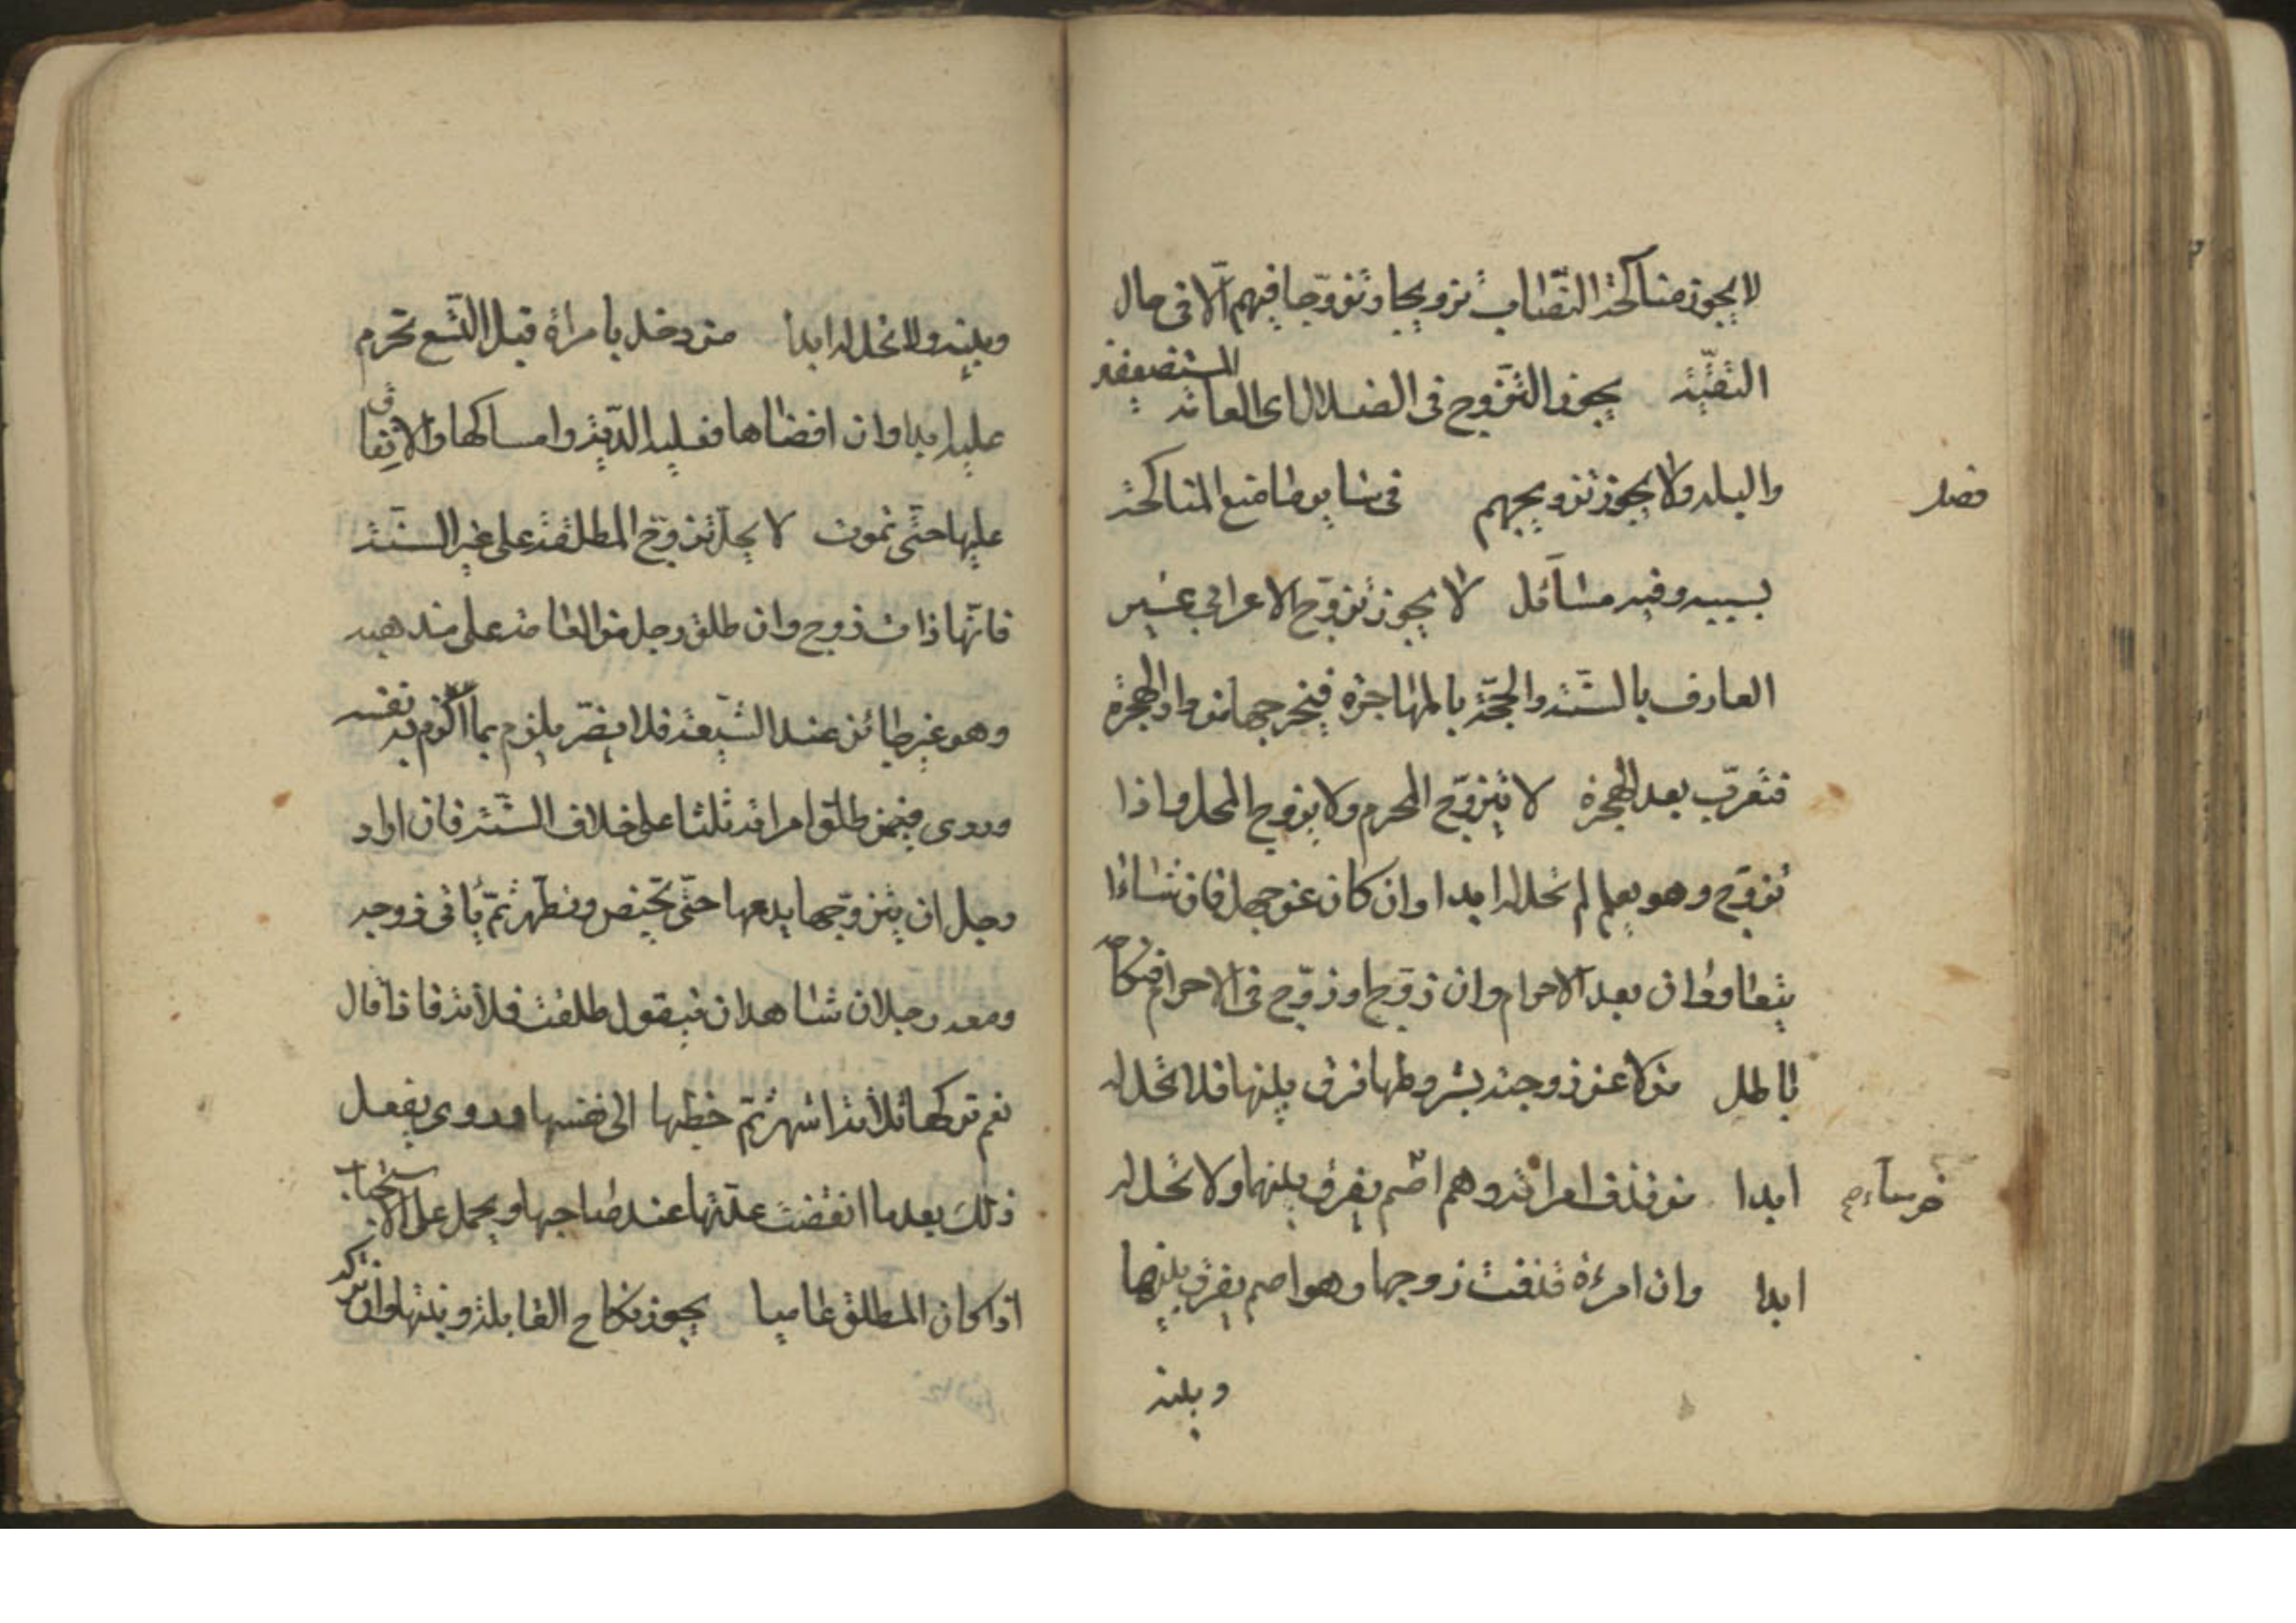 لا يجوز مناكحة النصّاب تزويجا وتزوّجا فيهم الّا فى حال
التقيّة يجوز التزوج فى الضلال اى العامّة المستضعفة
فصل والبله ولا يجوز تزويجهم فى ساير ما منع المناكحة
بسببه وفيه مسائل لا يجوز تزوّج الاعرابي غير
العارف بالسنّة والحجّة بالمهاجرة فيخرجها من دار الهجرة
فتعرّب بعد الهجرة لا يتزوّج المحرم ولا يزوج المحل واذا
تزوّج وهو يعلم لم تحل له ابدا وان كان عن جهل فان شاءا
يتعاودان بعد الاحرام وان زوّج او زوّج فى الاحرام فنكاحه
باطل من لاعن زوجته بشروطها فرق بينها فلا تحل له
خرساء ابدا من قذف امراته وهم اصم يفرق بينهما ولا تحل له
ابدا وان امرءة قذفت زوجها وهو اصم يفرق بينها
وبينه
وبينه ولا تحل له ابدا من دخل بامراة قبل التسع تحرم
عليه ابدا وان افضاها فعليه الدّية وامساكها والانفاق
عليها حتّى تموت لا يحلّ تزوّج المطلقة على غير السنّة
فانّها ذات زوج وان طلق رجل من العامة على مذهبه
وهو غير جائز عند الشيعة فلا يضرّ يلزم بما الزم به نفسه
وروى فيمن طلّق امراته ثلثا على خلاف السنّة فان اراد
رجل ان يتزوّجها يدعها حتّى تحيض وتطهر ثمّ يأتى زوجه
ومعه رجلان شاهدان فيقول طلقت فلانة فاذا قال
نعم تركها ثلاثة اشهر ثمّ خطبها الى نفسها وروى يفعل
ذلك بعد ما انقضت عدّتها عند صاحبها ويحمل على الاستحباب
اذا كان المطلق عاميا يجوز نكاح القابلة وبنتها وان تركه